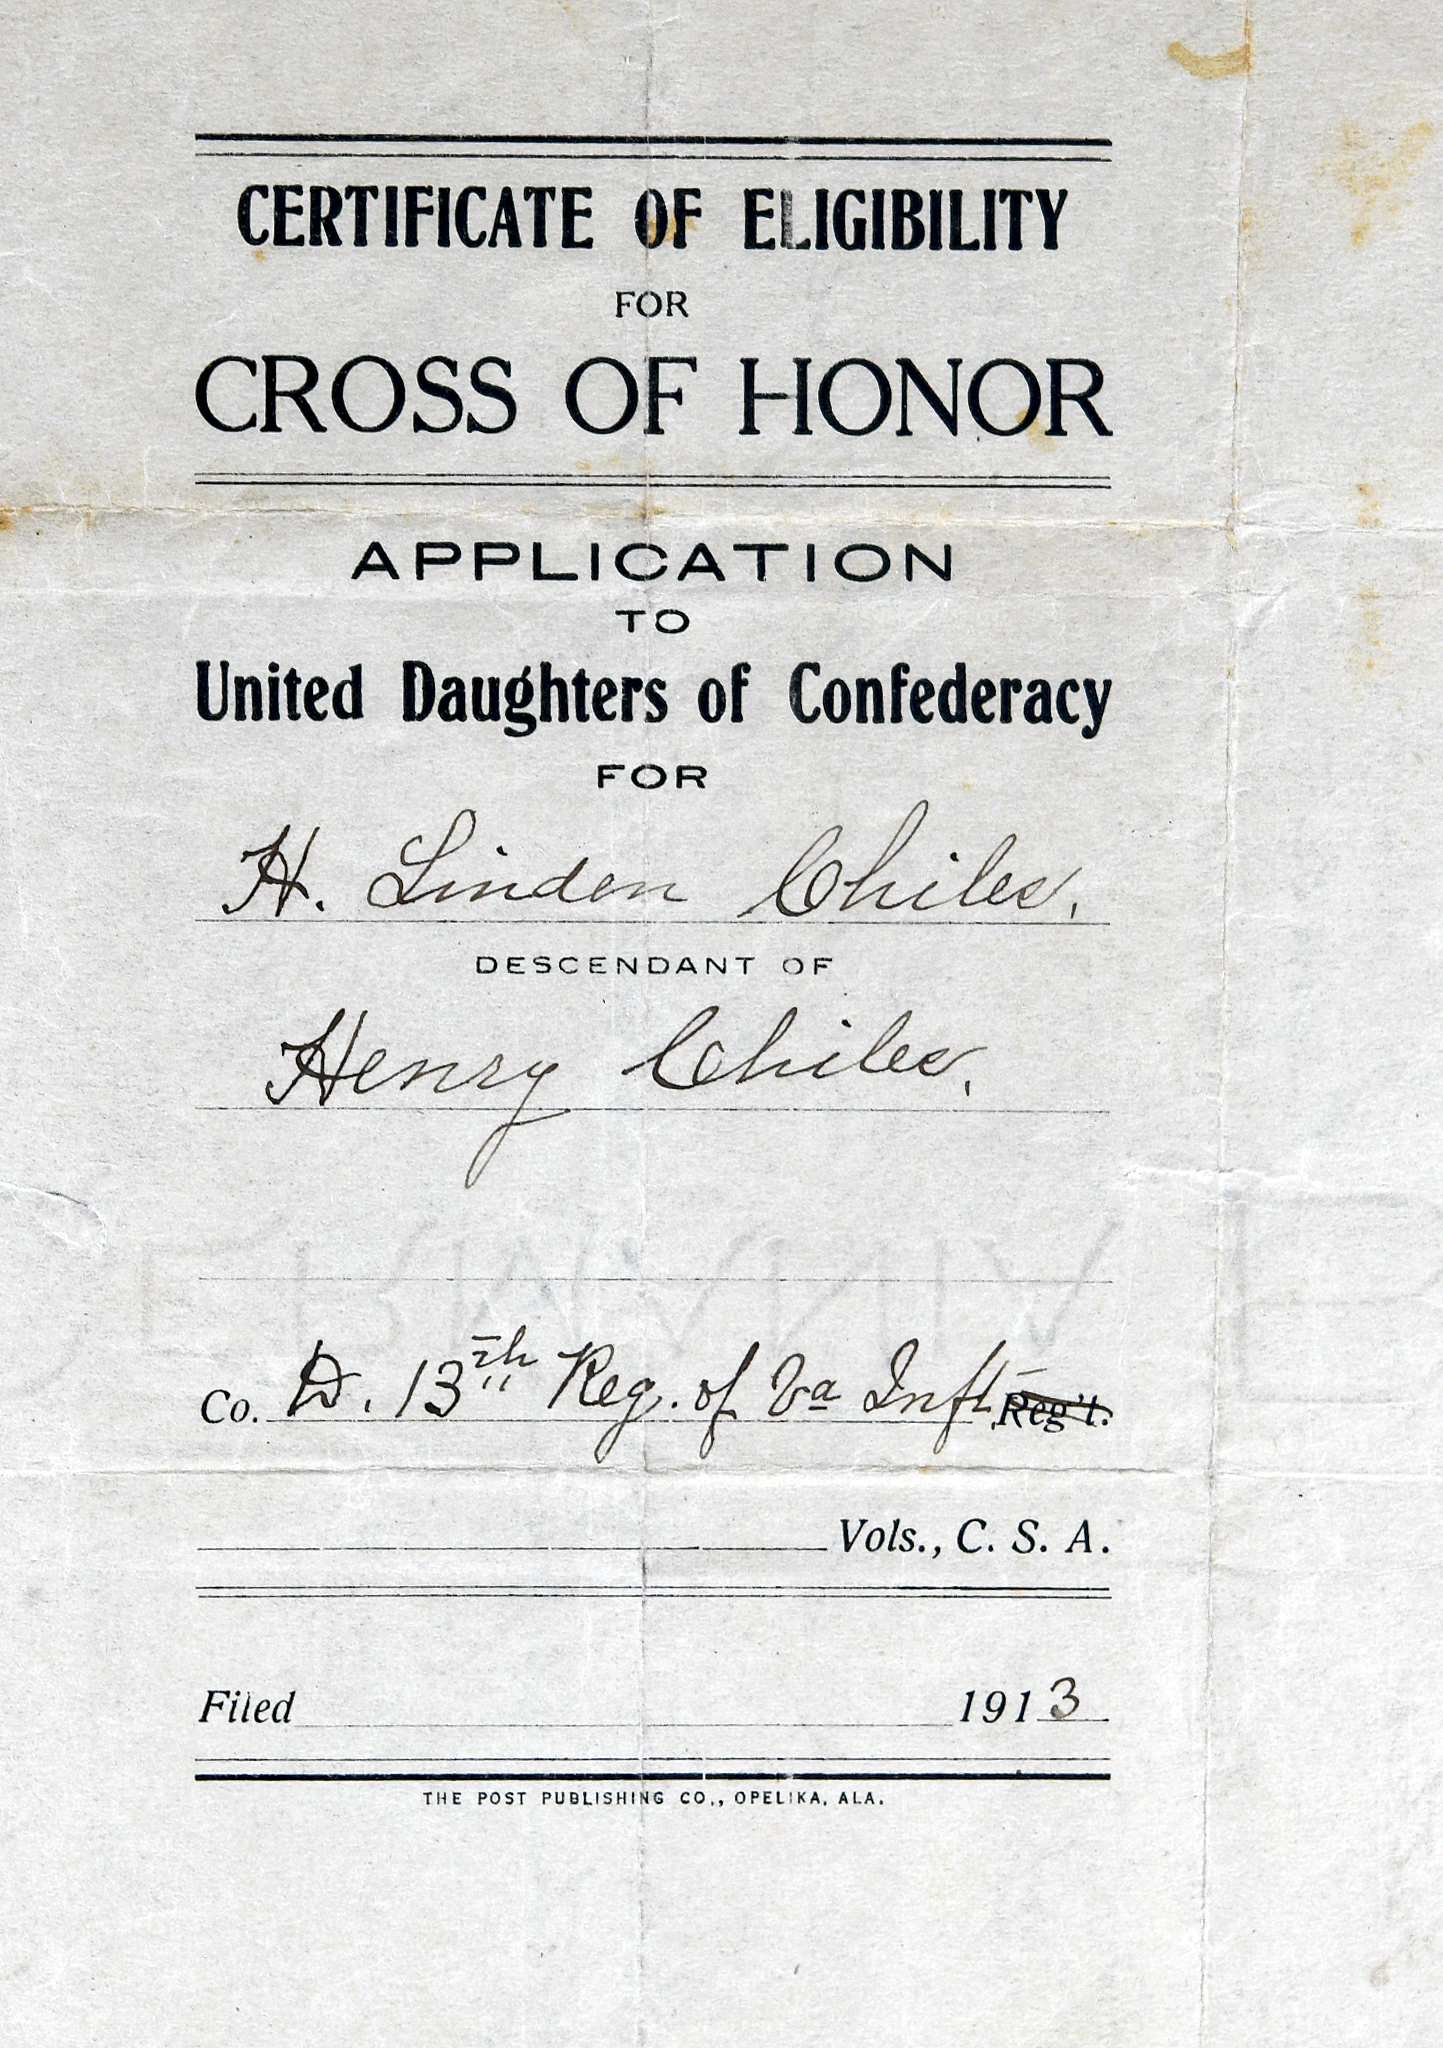 CERTIFICATE OF ELIGIBILITY
FOR
CROSS OF HONOR
APPLICATION
TO
United Daughters of Confederacy
FOR
H. Linden Chiles.
DESCENDANT OF
Henry Chiles.
Co. D. 13th Reg. of Va Inft Reg't.
Vols., C. S. A.
Filed 1913
THE POST PUBLISHING CO., OPELIKA, ALA.